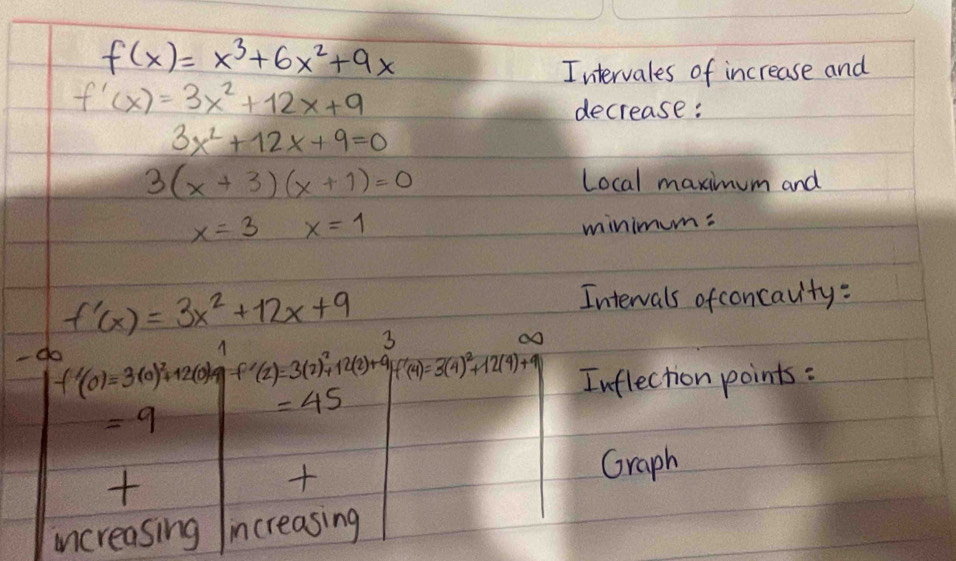 f(x) = x³+6x²+9x
f'(x) = 3x²+12x+9
3x²+12x+9=0
3(x+3)(x+1)=0
x=3 x=1
f'(x) = 3x²+12x+9
-∞ 1 3 ∞
f'(0)=3(0)²+12(0)+9 f'(2)=3(2)²+12(2)+9 f'(4)=3(4)²+12(4)+9
=9 =45
+ +
increasing increasing
Intervales of increase and
decrease:
Local maximum and
minimum:
Intervals of concavity:
Inflection points:
Graph